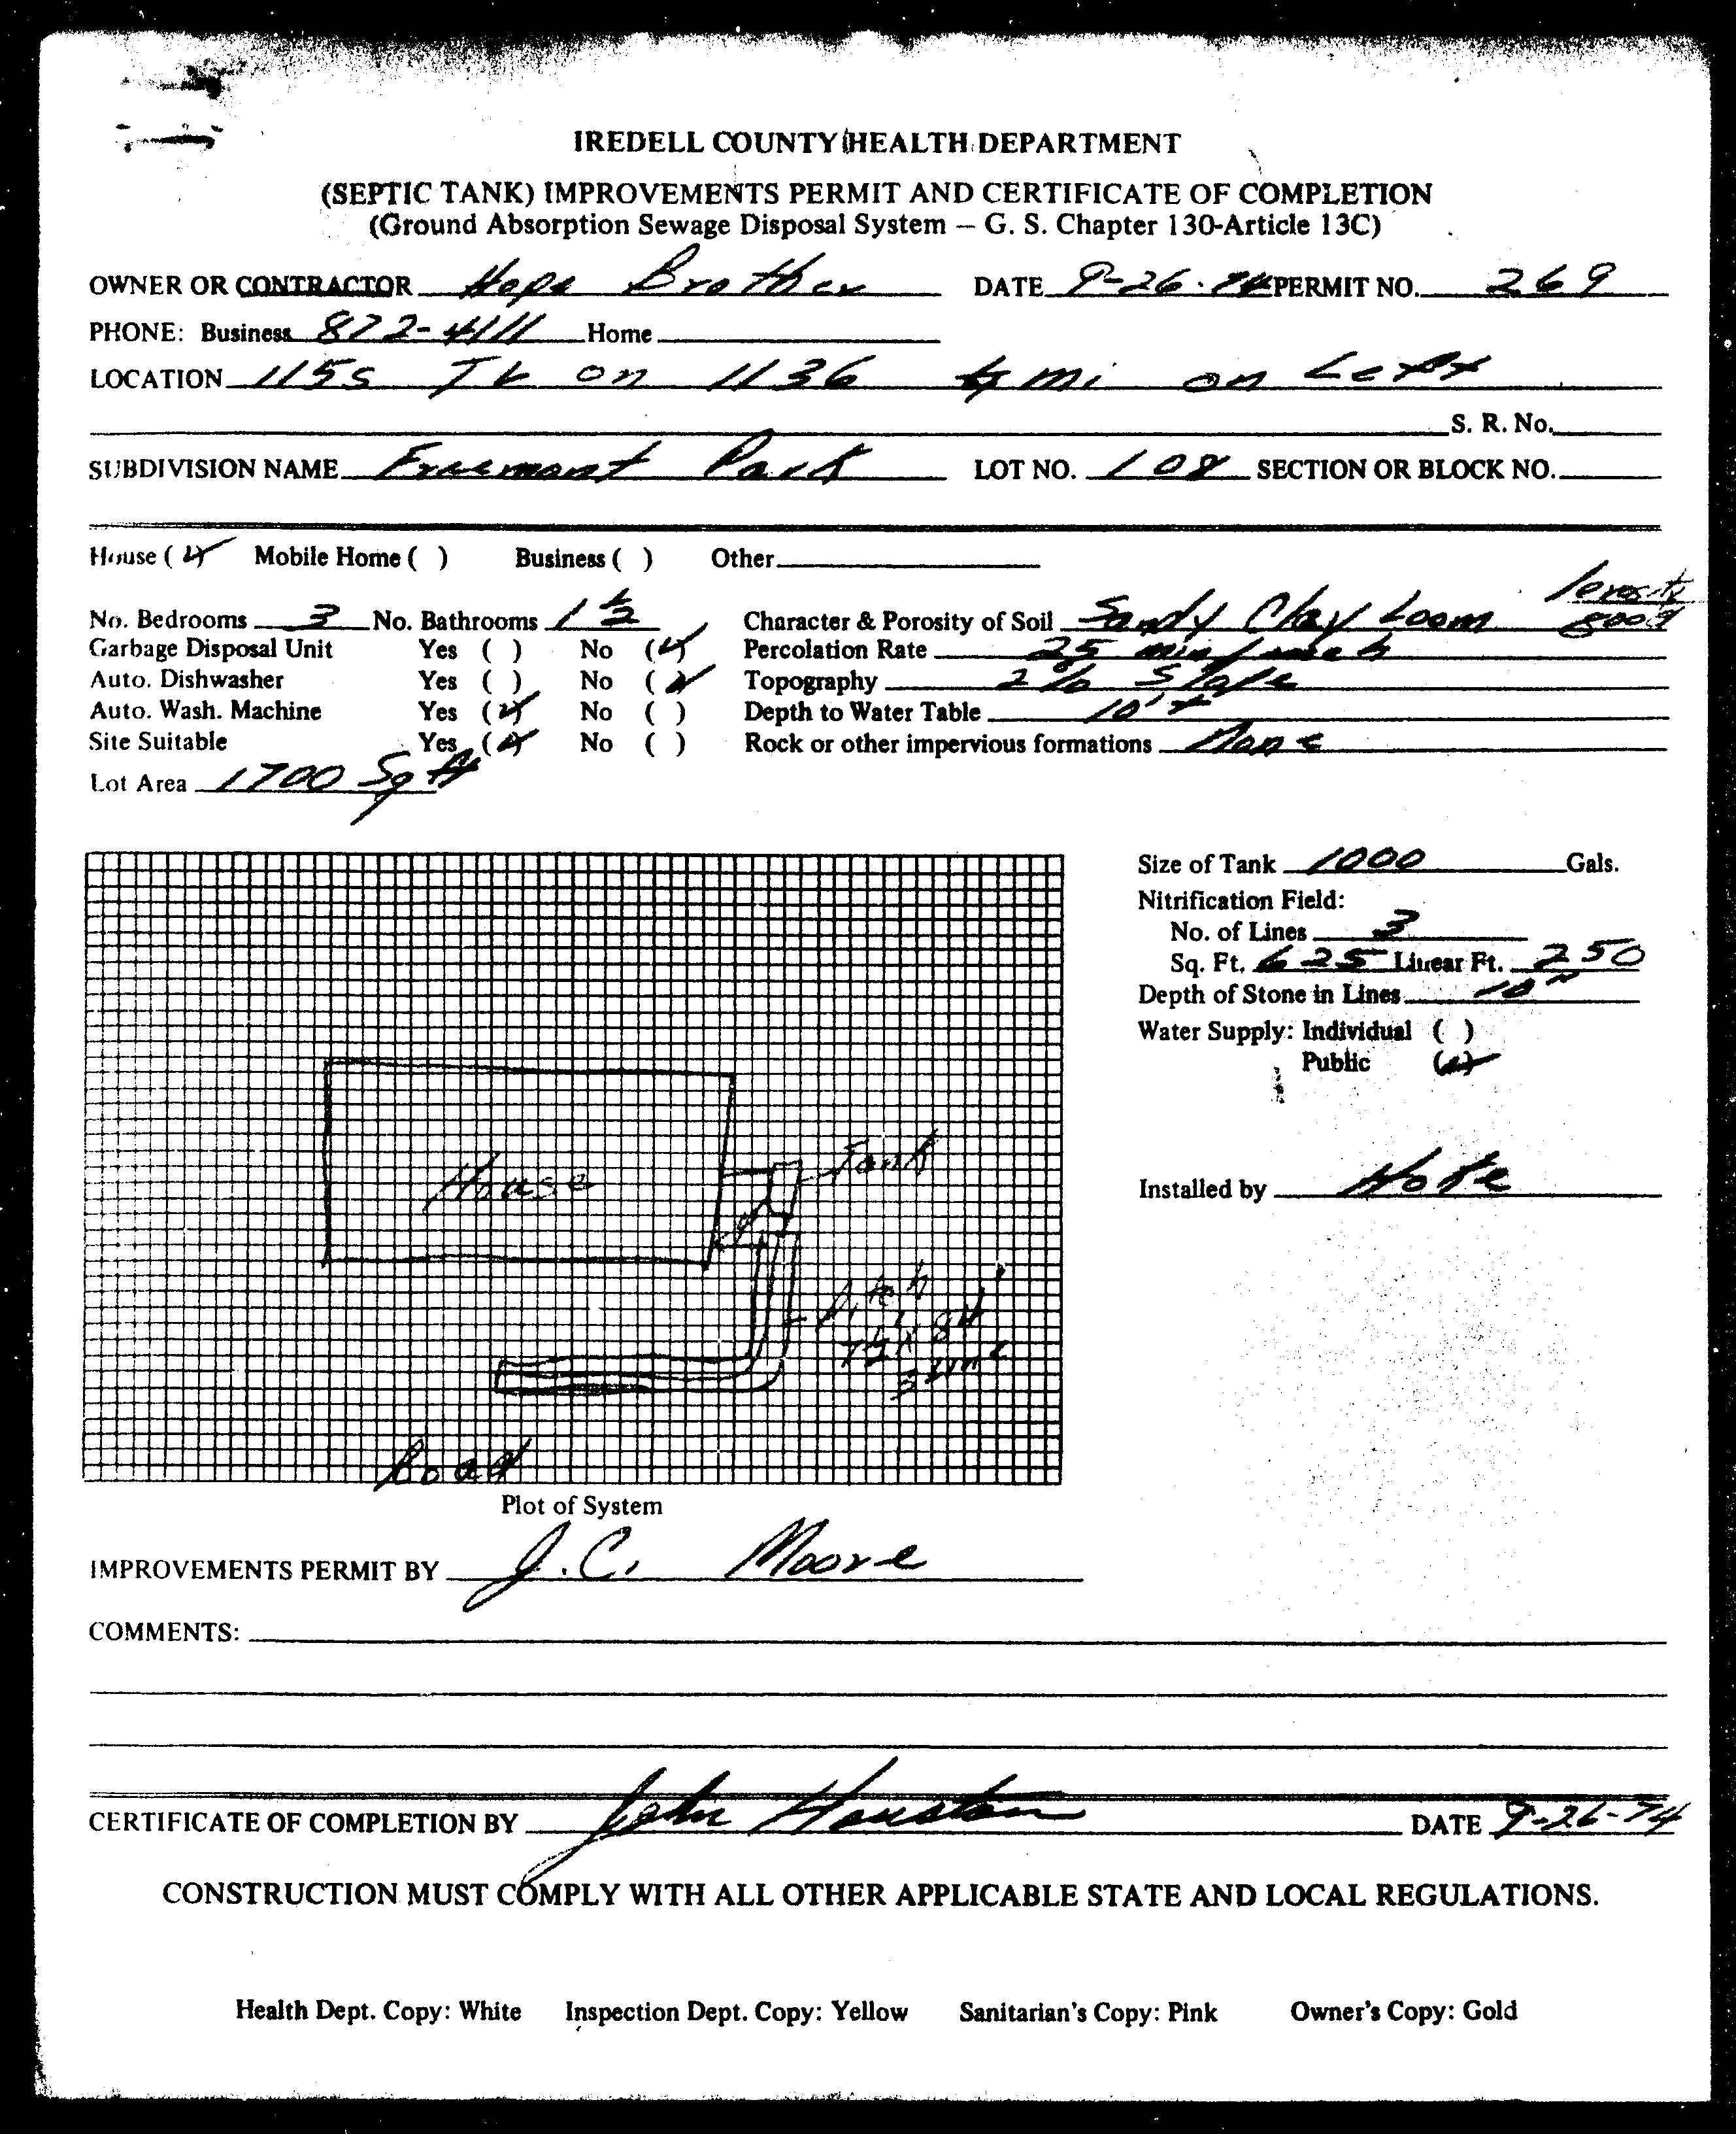 IREDELL COUNTY HEALTH DEPARTMENT
(SEPTIC TANK) IMPROVEMENTS PERMIT AND CERTIFICATE OF COMPLETION
(Ground Absorption Sewage Disposal System – G. S. Chapter 130-Article 13C)
OWNER OR CONTRACTOR Brother DATE 9-26-74 PERMIT NO. 269
PHONE: Business 872-4111 Home
LOCATION 115S TL on 1136 mi on Left
S. R. No.
SUBDIVISION NAME Park LOT NO. 108 SECTION OR BLOCK NO.
House ( ) Mobile Home ( ) Business ( ) Other
No. Bedrooms 3 No. Bathrooms 1 1/2 Character & Porosity of Soil Sandy Clay Loom good
Garbage Disposal Unit Yes ( ) No ( ) Percolation Rate 25 min/inch
Auto. Dishwasher Yes ( ) No ( ) Topography 2% Slope
Auto. Wash. Machine Yes ( ) No ( ) Depth to Water Table 10'+
Site Suitable Yes ( ) No ( ) Rock or other impervious formations None
Lot Area 1700 Sq ft
Size of Tank 1000 Gals.
Nitrification Field:
No. of Lines 3
Sq. Ft. 625 Linear Ft. 250
Depth of Stone in Lines 10"
Water Supply: Individual ( )
Public ( )
Installed by
House
Tank
84'
3 Line
Road
Plot of System
IMPROVEMENTS PERMIT BY J.C. Moore
COMMENTS:
CERTIFICATE OF COMPLETION BY John Houston DATE 9-26-74
CONSTRUCTION MUST COMPLY WITH ALL OTHER APPLICABLE STATE AND LOCAL REGULATIONS.
Health Dept. Copy: White Inspection Dept. Copy: Yellow Sanitarian's Copy: Pink Owner's Copy: Gold